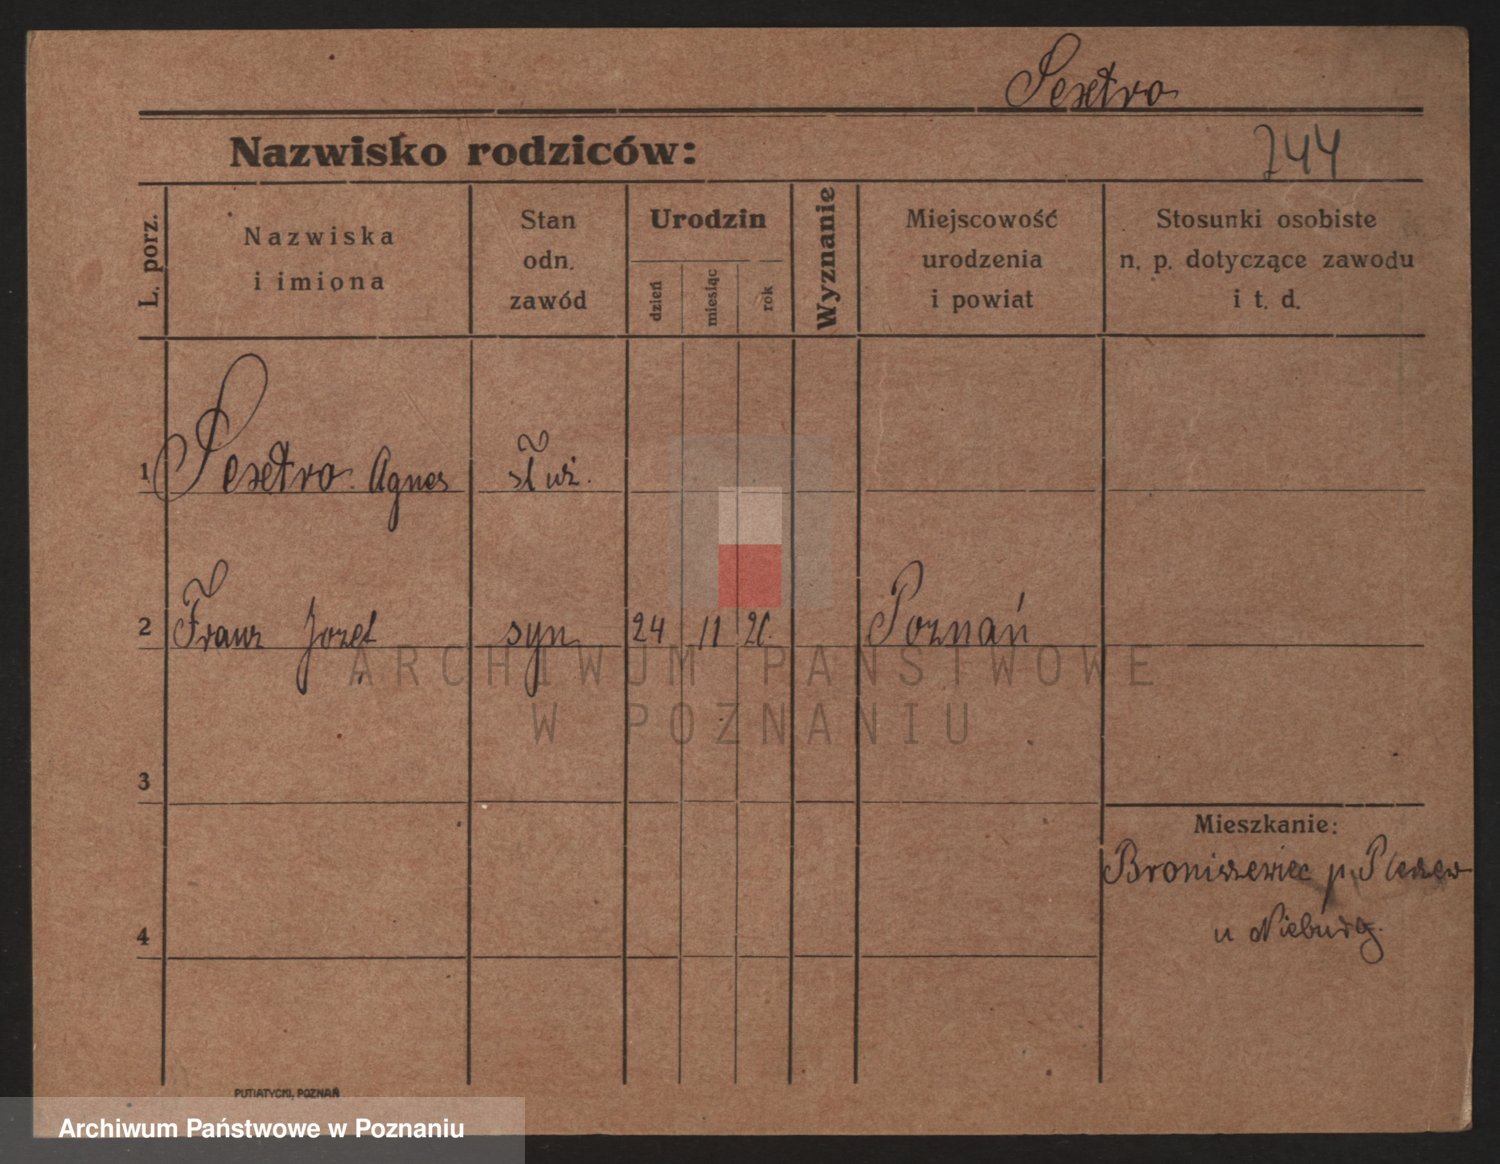 Pesetro
Nazwisko rodziców:
244
L. porz.
Nazwiska
i imiona
Stan
odn.
zawód
Urodzin
dzień
miesiąc
rok
Wyznanie
Miejscowość
urodzenia
i powiat
Stosunki osobiste
n. p. dotyczące zawodu
i t. d.
1 Agnes służ.
2 Franz Jozef syn 24 11 Poznań
3
Mieszkanie:
Broniszewiec p. Pleszew
4
u Nieburg.
PUTIATYCKI, POZNAŃ
ARCHIWUM PAŃSTWOWE
W POZNANIU
Archiwum Państwowe w Poznaniu